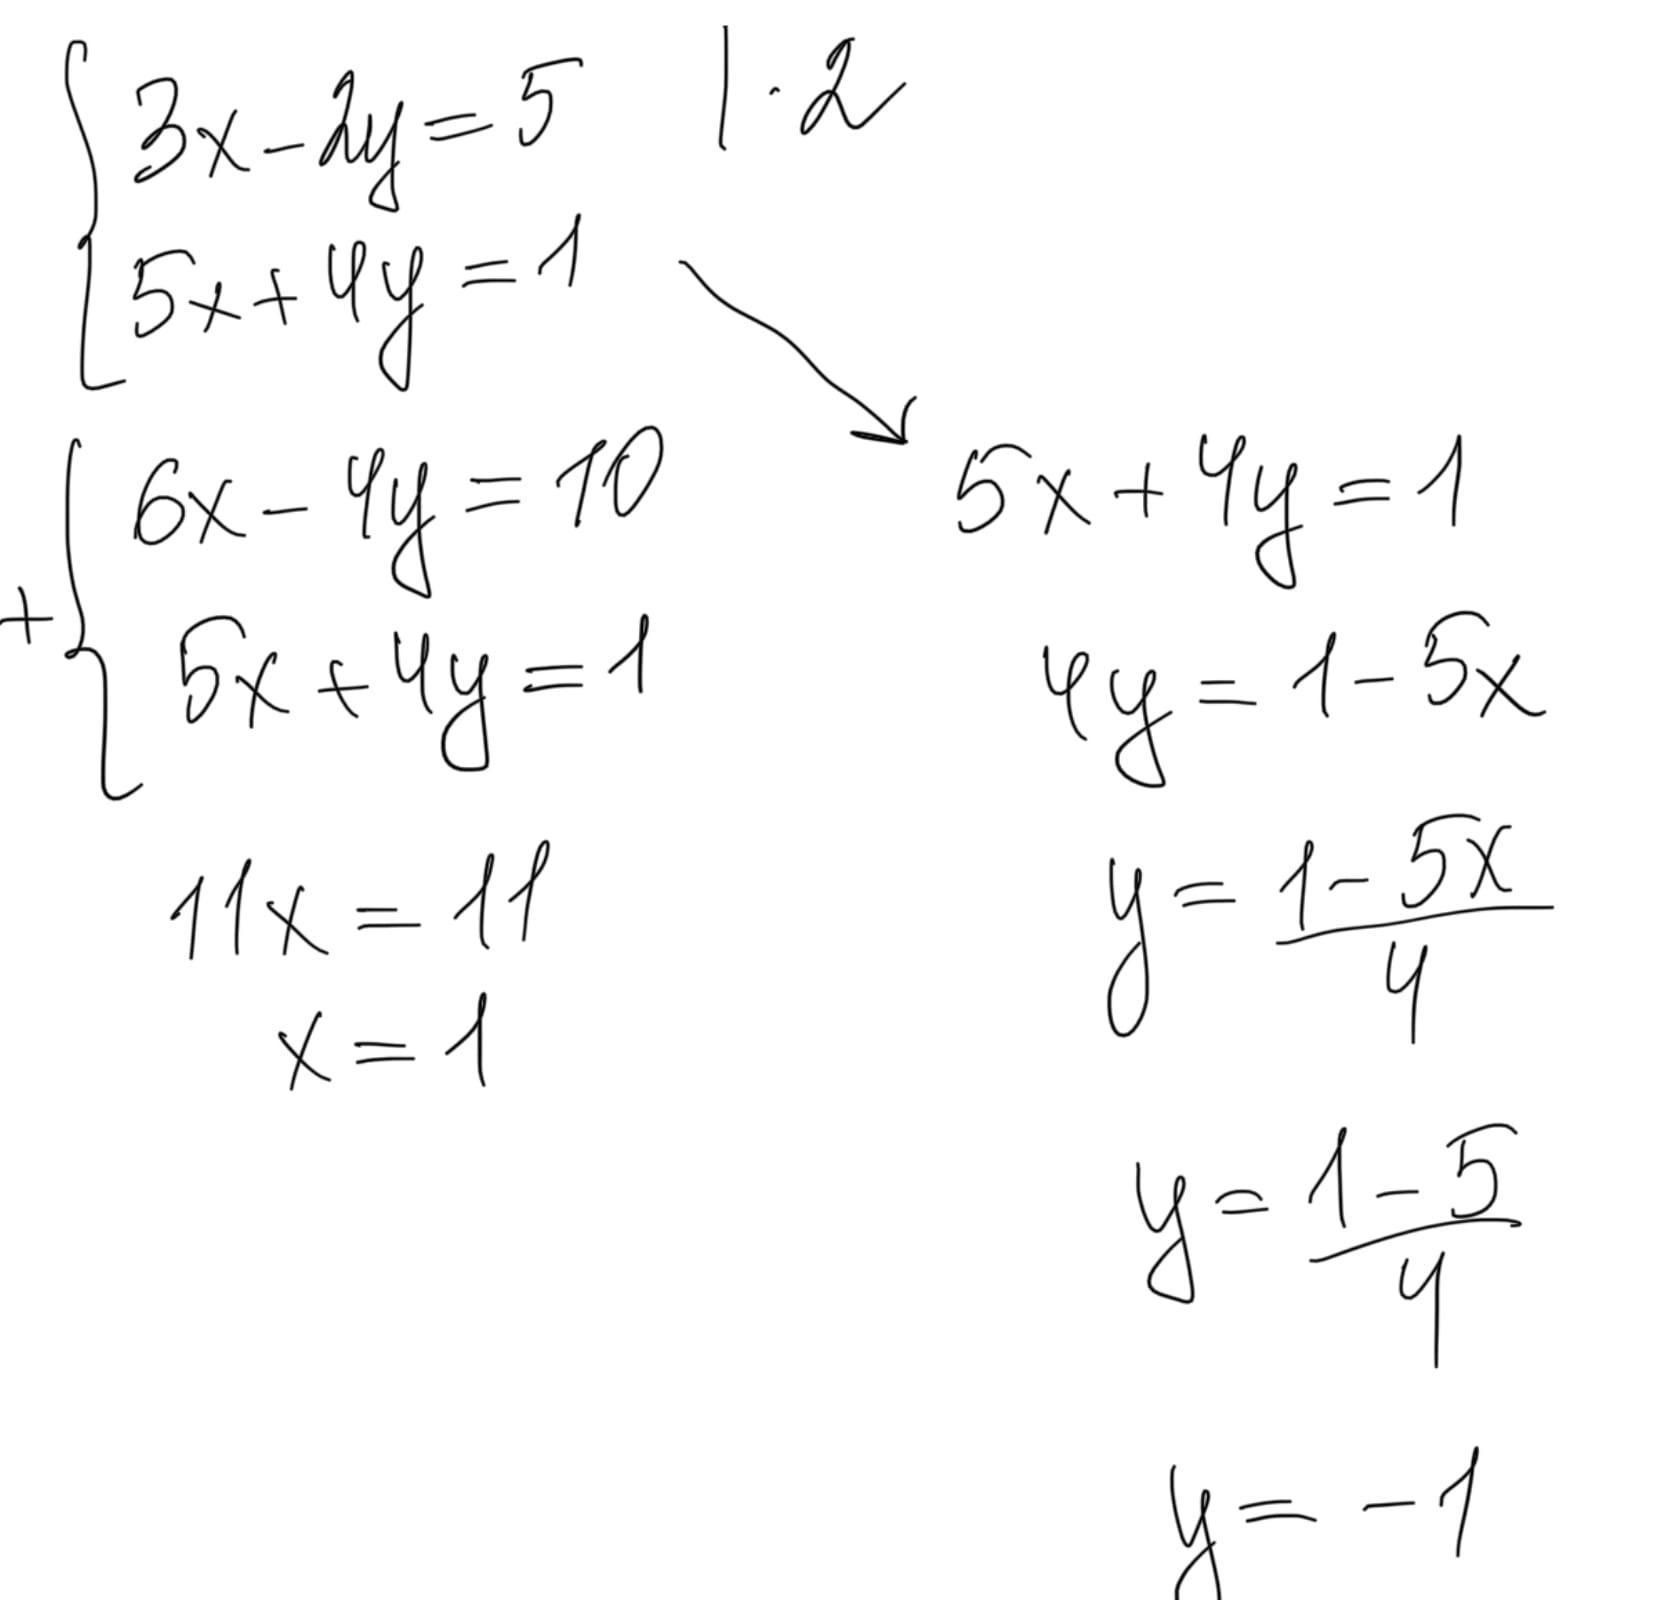 3x - 2y = 5 | · 2
5x + 4y = 1
6x - 4y = 10
+
5x + 4y = 1
11x = 11
x = 1
5x + 4y = 1
4y = 1 - 5x
y = (1 - 5x)/4
y = (1 - 5)/4
y = - 1